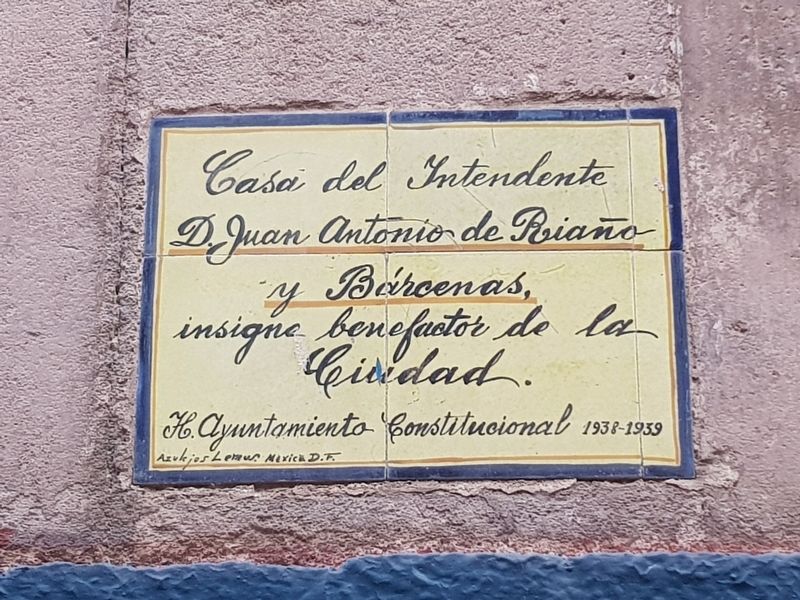 Casa del Intendente
D. Juan Antonio de Riaño
y Bárcenas,
insigne benefactor de la
Ciudad.
H. Ayuntamiento Constitucional 1938-1939
Azulejos Lemus Mexico D.F.